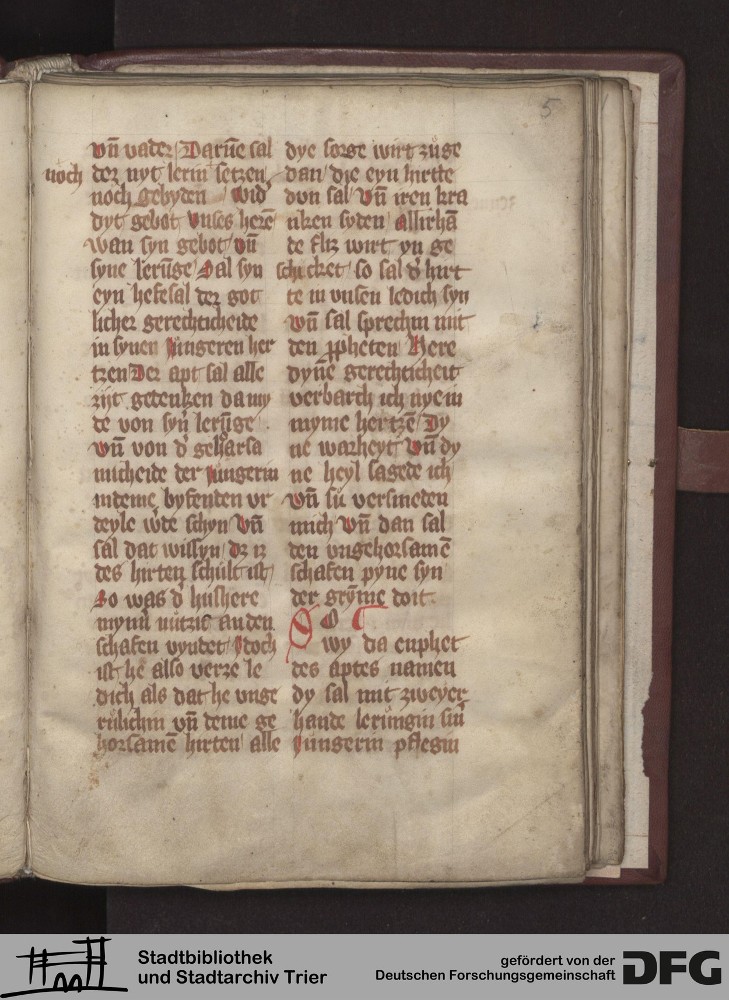 5
vn̄ vader Darūe sal
noch der nyt lerin setzen
noch gebyden wid'
dyt gebot vnses herē
wan syn gebot vn̄
syne lerūge Sal syn
eyn hefesal der got
licher gerechticheide
in synen Jungeren her
tzen Der apt sal alle
zijt gedenken da my
de von syn̄ lerūge
vn̄ von d' gehorsa
micheide der Jungerin
indeme bysenden vr
deyle w'de schyn vn̄
sal dat wissyn dz iz
des hirten schult ist
So was d' hushere
myn nutzis an den
schafen vyndet Jdoch
ist he also verre le
dich als dat he vnge
rulichin vn̄ deme ge
horsamē hirten alle
dye sorge wirt zuge
dan die eyn hirtte
dun sal vn̄ iren kra
nken syden allirhā
de fliz wirt yn ge
schicket so sal d' hirt
te in vnsen ledich syn
vn̄ sal sprechin mit
den ppheten Here
dyne gerechticheit
verbarch ich nye in
myme hertzē Dy
ne warheyt vn̄ dy
ne heyl sagede ich
vn̄ sii versmeden
mich vn̄ dan sal
den vngehorsamē
schafen pyne syn
der gryme doit.
SO
wy da enphet
des aptes namen
dy sal mit zweyer
hande leringin sin
Jungerin pflegin
Stadtbibliothek
und Stadtarchiv Trier
gefördert von der
Deutschen Forschungsgemeinschaft
DFG